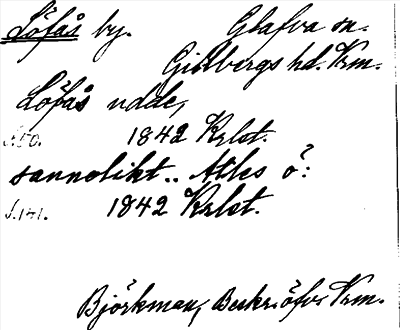 Löfås by. Glafva sn.
Gillbergs hd. Vrm.
Löfås udde,
s.50. 1842 Krlst.
sannolikt.. Atles ö?:
s.141. 1842 Krlst.
Björkman, Beskr. öfver Vrm.